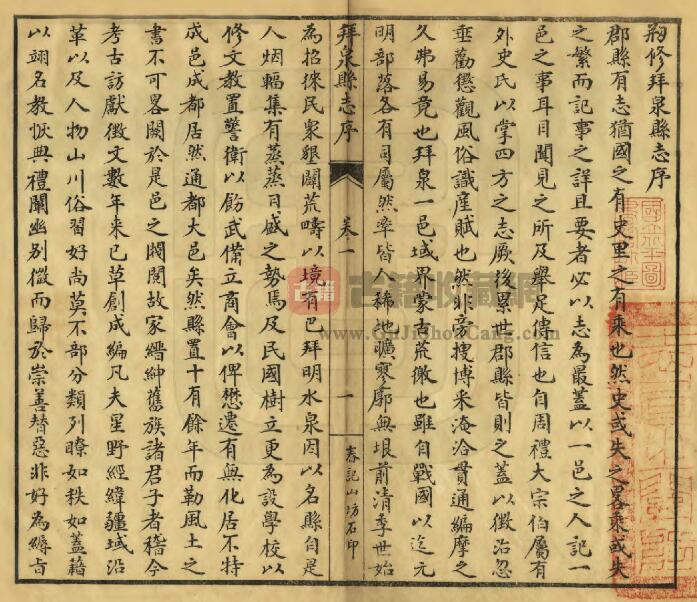 籾修拜泉縣志序
郡縣有志猶國之有史里之有乘也然史或失之畧乘或失
之繁而記事之詳且要者必以志為最蓋以一邑之人記一
邑之事耳目聞見之所及舉足傳信也自周禮大宗伯屬有
外史氏以掌四方之志厥後累世郡縣皆則之蓋以徵治忽
垂勸懲觀風俗識產賦也然非旁搜博采淹洽貫通編摩之
久弗易竟也拜泉一邑域界蒙古荒徼也雖自戰國以迄元
明部落各有司屬然率皆人稀地曠寥廓無垠前清季世始
拜泉縣志序
卷一
一
春記山坊石印
為招徠民衆墾闢荒疇以境有巴拜明水泉因以名縣自是
人烟輻集有蒸蒸日盛之勢焉及民國樹立更為設學校以
修文教置警衛以飭武備立商會以俾懋遷有無化居不特
成邑成都居然通都大邑矣然縣置十有餘年而勒風土之
書不可畧闕於是邑之閥閱故家縉紳舊族諸君子者稽今
考古訪獻徵文數年來已草創成編凡夫星野經緯疆域沿
革以及人物山川俗習好尚莫不部分類列瞭如秩如蓋藉
以翊名教恢典禮闡幽別微而歸於崇善替惡非好為縟旨
古籍
古籍收藏网
www.GuJiShouCang.com